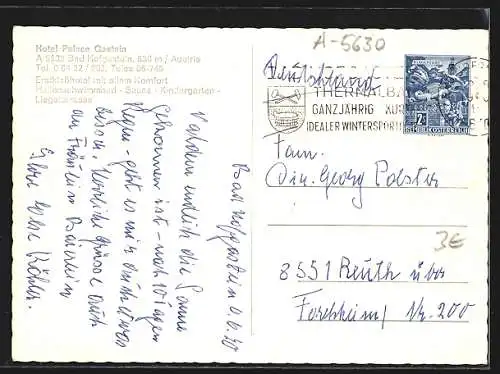 Hotel Palace Gastein
A 5630 Bad Hofgastein, 850 m / Austria
Tel. 0 64 32 / 202, Telex 06-745
Erstklaßhotel mit allem Komfort
Hallenschwimmbad - Sauna - Kindergarten -
Liegeterrasse
A-5630
Deutschland
THERMALBA
GANZJÄHRIG KUR
IDEALER WINTERSPORT
REPUBLIK ÖSTERREICH
Bad Hofgastein
Nachdem endlich die Sonne
gekommen ist - nach 10 Tagen
Regen - geht es mir auch etwas
besser. Herzliche Grüsse auch
an Fräulein
Ihre Else Köhler.
Fam.
Dir. Georg Polster
3€
8551 Reuth über
Forchheim, Nr. 200